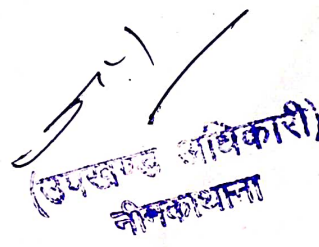 (उपखण्ड अधिकारी)
नीमकाथाना